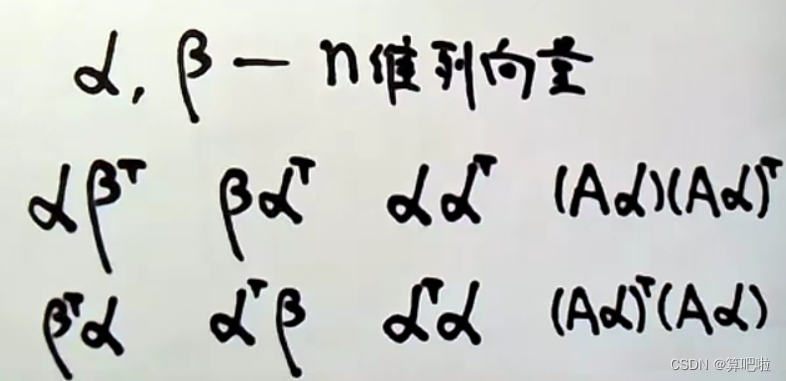 α, β — n维列向量
αβᵀ βαᵀ ααᵀ (Aα)(Aα)ᵀ
βᵀα αᵀβ αᵀα (Aα)ᵀ(Aα)
CSDN @算吧啦